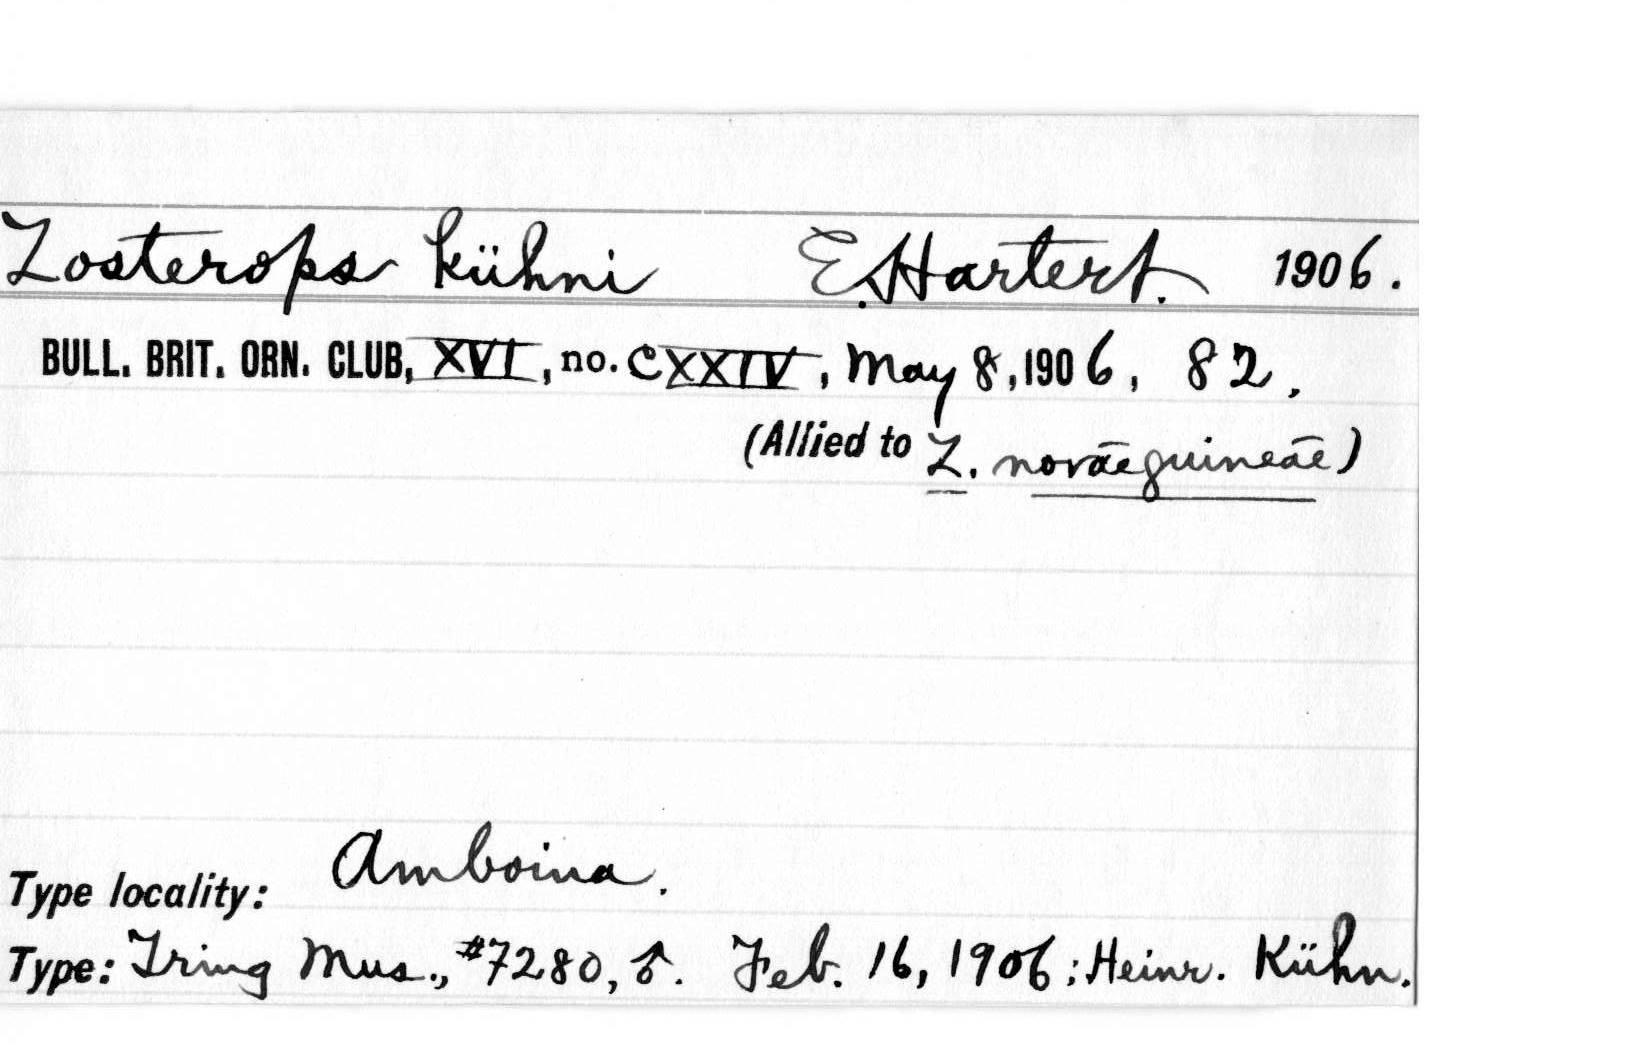 Zosterops kühni E. Hartert. 1906.
BULL. BRIT. ORN. CLUB, XVI, no. CXXIV, May 8, 1906, 82.
(Allied to Z. novaeguineae)
Type locality: Amboina.
Type: Tring Mus., #7280, ♂. Feb. 16, 1906; Heinr. Kühn.